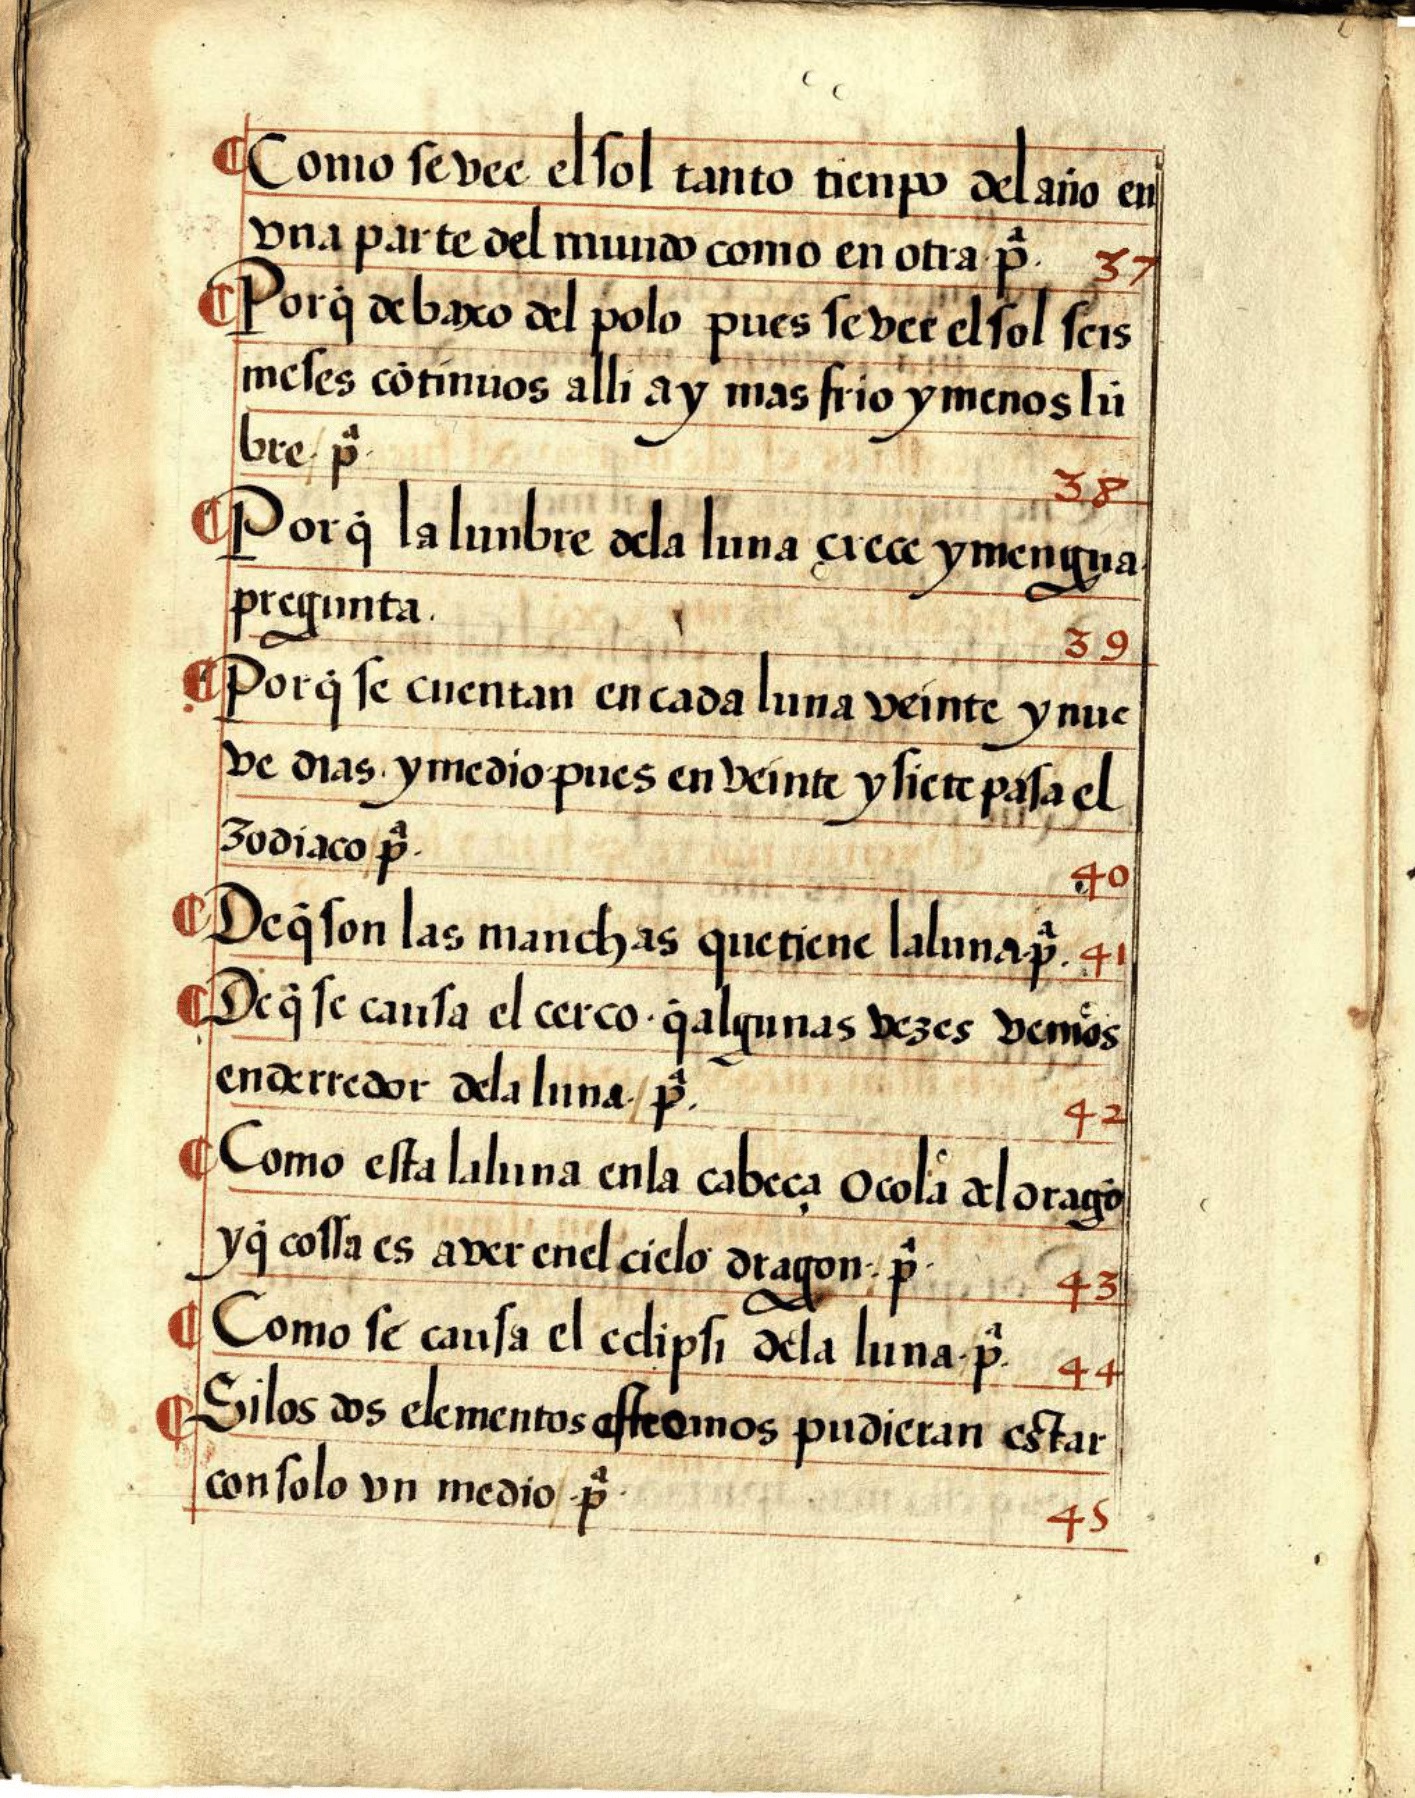 ¶ Como se vee el sol tanto tienpo del año en
vna parte del mundo como en otra. pª. 37
¶ Porq̃ debaxo del polo pues se vee el sol seis
meses cõtinuos alli ay mas frio y menos lũ
bre. / pª. 38
¶ Porq̃ la lunbre dela luna creçe y mengua.
pregunta. 39
¶ Porq̃ se cuentan en cada luna veinte y nue
ve dias. y medio. pues en veinte y siete pasa el
zodiaco / pª. 40
¶ De q̃ son las manchas que tiene la luna. pª. 41
¶ De q̃ se causa el cerco. q̃ algunas vezes vemos
enderredor dela luna. / pª. 42
¶ Como esta la luna enla cabeça o cola del dragõ
y q̃ cossa es aver enel cielo dragon. pª. 43
¶ Como se causa el eclipsi dela luna. pª. 44
¶ Si los dos elementos estremos pudieran estar
con solo vn medio / .pª. 45